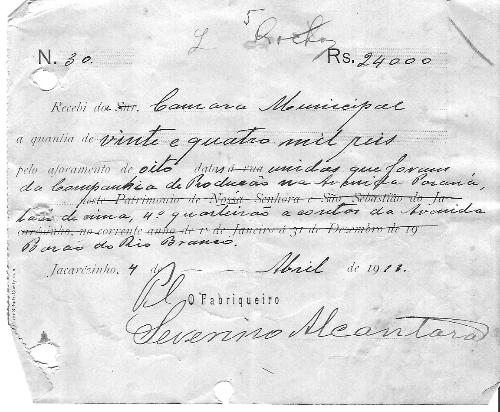 5
N. 30. Rs. 24000
Recebi do Snr. Camara Municipal
a quantia de vinte e quatro mil reis
pelo aforamento de oito datas á rua unidas que foram
da Companhia de Producção na Avenida Paraná,
deste Patrimonio de Nossa Senhora e São Sebastião do Ja-
4º quarteirão a contos da Avenida
carézinho, no corrente anno de 1º de Janeiro á 31 de Dezembro de 19
Barão do Rio Branco.
Jacarézinho, 4 de Abril de 19
O Fabriqueiro
Severino Alcantara